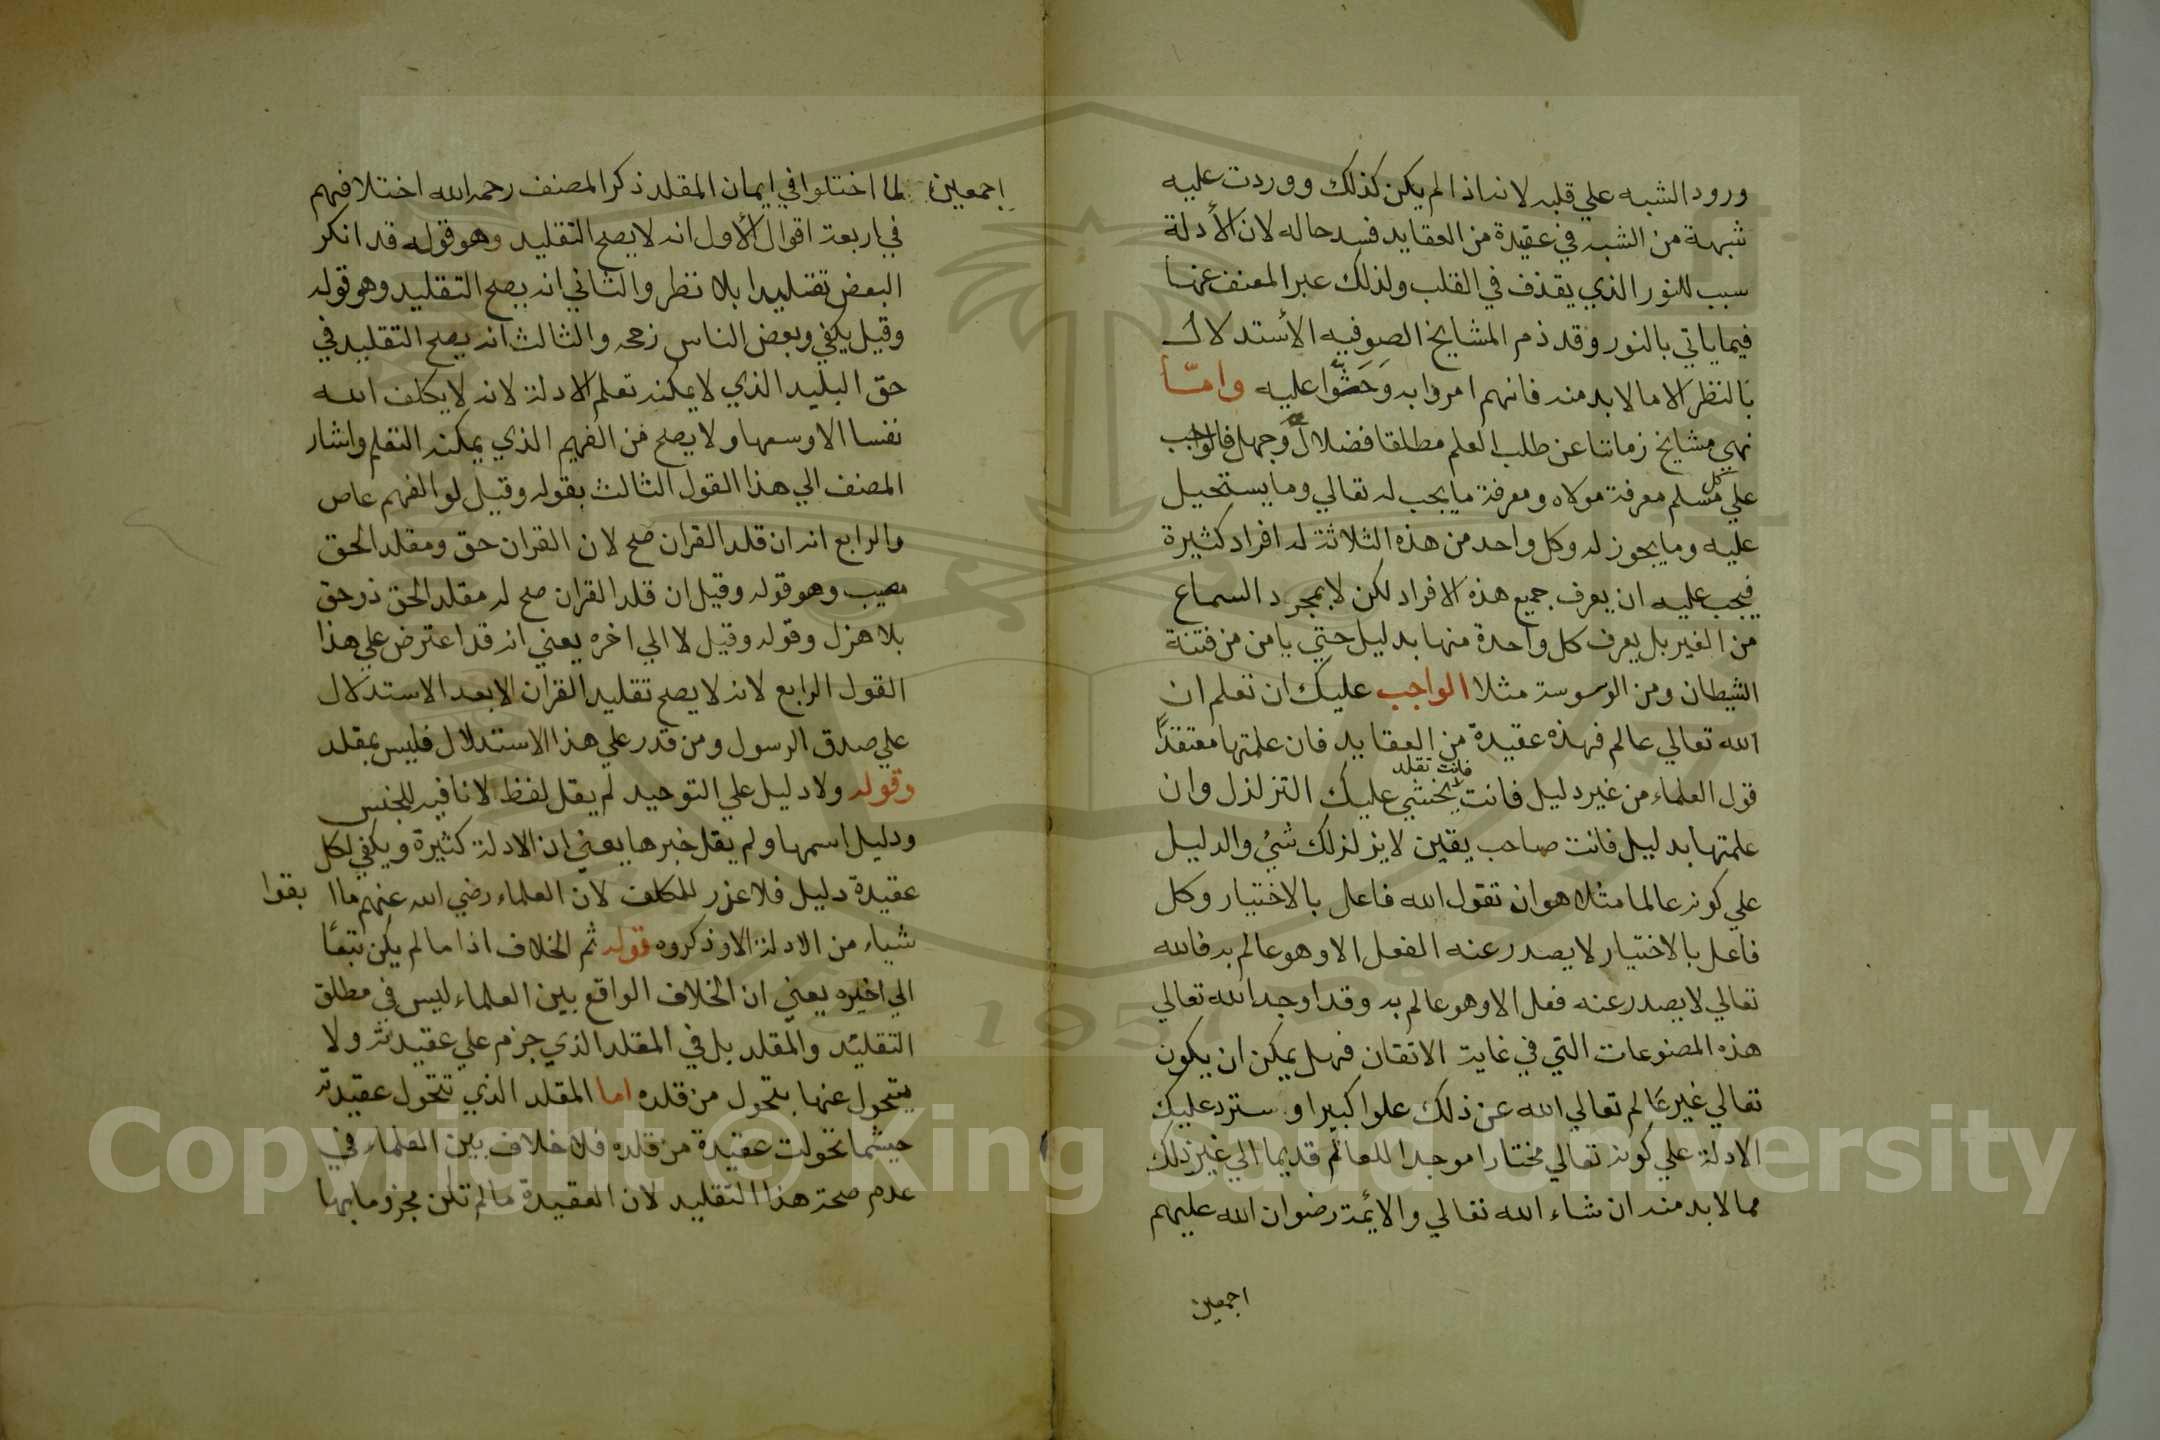 ورود الشبه علي قلبه لانه اذا لم يكن كذلك ووردت عليه
شبهة من الشبه في عقيدة من العقايد فسد حاله لان الأدلة
سبب للنور الذي يقذف في القلب ولذلك عبر المصنف عنها
فيما ياتي بالنور وقد ذم المشايخ الصوفيه الأستدلال
بالنظر الا ما لا بد منه فانهم امروا به وحثّوا عليه وامّا
نهي مشايخ زماننا عن طلب العلم مطلقا فضلال وجهل فالواجب
علي كل مسلم معرفة مولاه ومعرفة ما يجب له تعالي وما يستحيل
عليه وما يجوز له وكل واحد من هذه الثلاثة له افراد كثيرة
فيجب عليه ان يعرف جميع هذه الافراد لكن لا بمجرد السماع
من الغير بل يعرف كل واحدة منها بدليل حتي يامن من فتنة
الشيطان ومن الوسوسة مثلا الواجب عليك ان تعلم ان
الله تعالي عالم فهذه عقيدة من العقايد فان علمتها معتقدًا
قول العلماء من غير دليل فانت فانت تقلد يخشي عليك التزلزل وان
علمتها بدليل فانت صاحب يقين لا يزلزلك شئ والدليل
علي كونه عالما مثلا هو ان تقول الله فاعل بالاختيار وكل
فاعل بالاختيار لا يصدر عنه الفعل الا وهو عالم به فالله
تعالي لا يصدر عنه فعل الا وهو عالم به وقد اوجد الله تعالي
هذه المصنوعات التي في غاية الاتقان فهل يمكن ان يكون
تعالي غير عالم تعالي الله عن ذلك علوا كبيرا وسترد عليك
الادلة علي كونه تعالي مختارا موجدا للعالم قديما الي غير ذلك
مما لا بد منه ان شاء الله تعالي والائمة رضوان الله عليهم
اجمعين
اجمعين لما اختلوا في ايمان المقلد ذكر المصنف رحمه الله اختلافهم
في اربعة اقوال الأول انه لا يصح التقليد وهو قوله قد انكر
البعض تقليدا بلا نظر والثاني انه يصح التقليد وهو قوله
وقيل يكفي وبعض الناس زعمه والثالث انه يصح التقليد في
حق البليد الذي لا يمكنه تعلم الادلة لانه لا يكلف الله
نفسا الا وسعها ولا يصح من الفهيم الذي يمكنه التعلم واشار
المصنف الي هذا القول الثالث بقوله وقيل لو الفهم عاص
والرابع انه ان قلد القران صح لان القران حق ومقلد الحق
مصيب وهو قوله وقيل ان قلد القران صح له مقلد الحق ذو حق
بلا هزل وقوله وقيل لا الي اخره يعني انه قد اعترض علي هذا
القول الرابع لانه لا يصح تقليد القران الا بعد الاستدلال
علي صدق الرسول ومن قدر علي هذا الاستدلال فليس بمقلد
وقوله ولا دليل علي التوحيد لم يقل لفظ لا نافيه للجنس
ودليل اسمها ولم يقل خبرها يعني ان الادلة كثيرة ويكفي لكل
عقيدة دليل فلا عزر للمكلف لان العلماء رضي الله عنهم ما ابقوا
شياء من الادلة الا وذكروه قوله ثم الخلاف اذا ما لم يكن تبعًا
الي اخيره يعني ان الخلاف الواقع بين العلماء ليس في مطلق
التقليد والمقلد بل في المقلد الذي جزم علي عقيدته ولا
يتحول عنها بتحول من قلده اما المقلد الذي تتحول عقيدته
حيثما تحولت عقيدة من قلده فلا خلاف بين العلماء في
عدم صحة هذا التقليد لان العقيدة ما لم تكن مجزوما بها
Copyright © King Saud University
1957